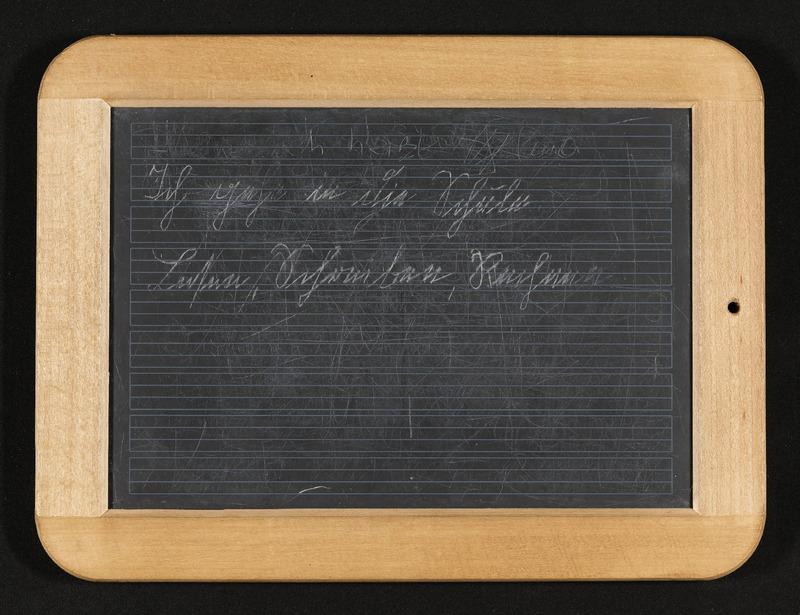 Ich gehe in die Schule
Lesen, Schreiben, Rechnen